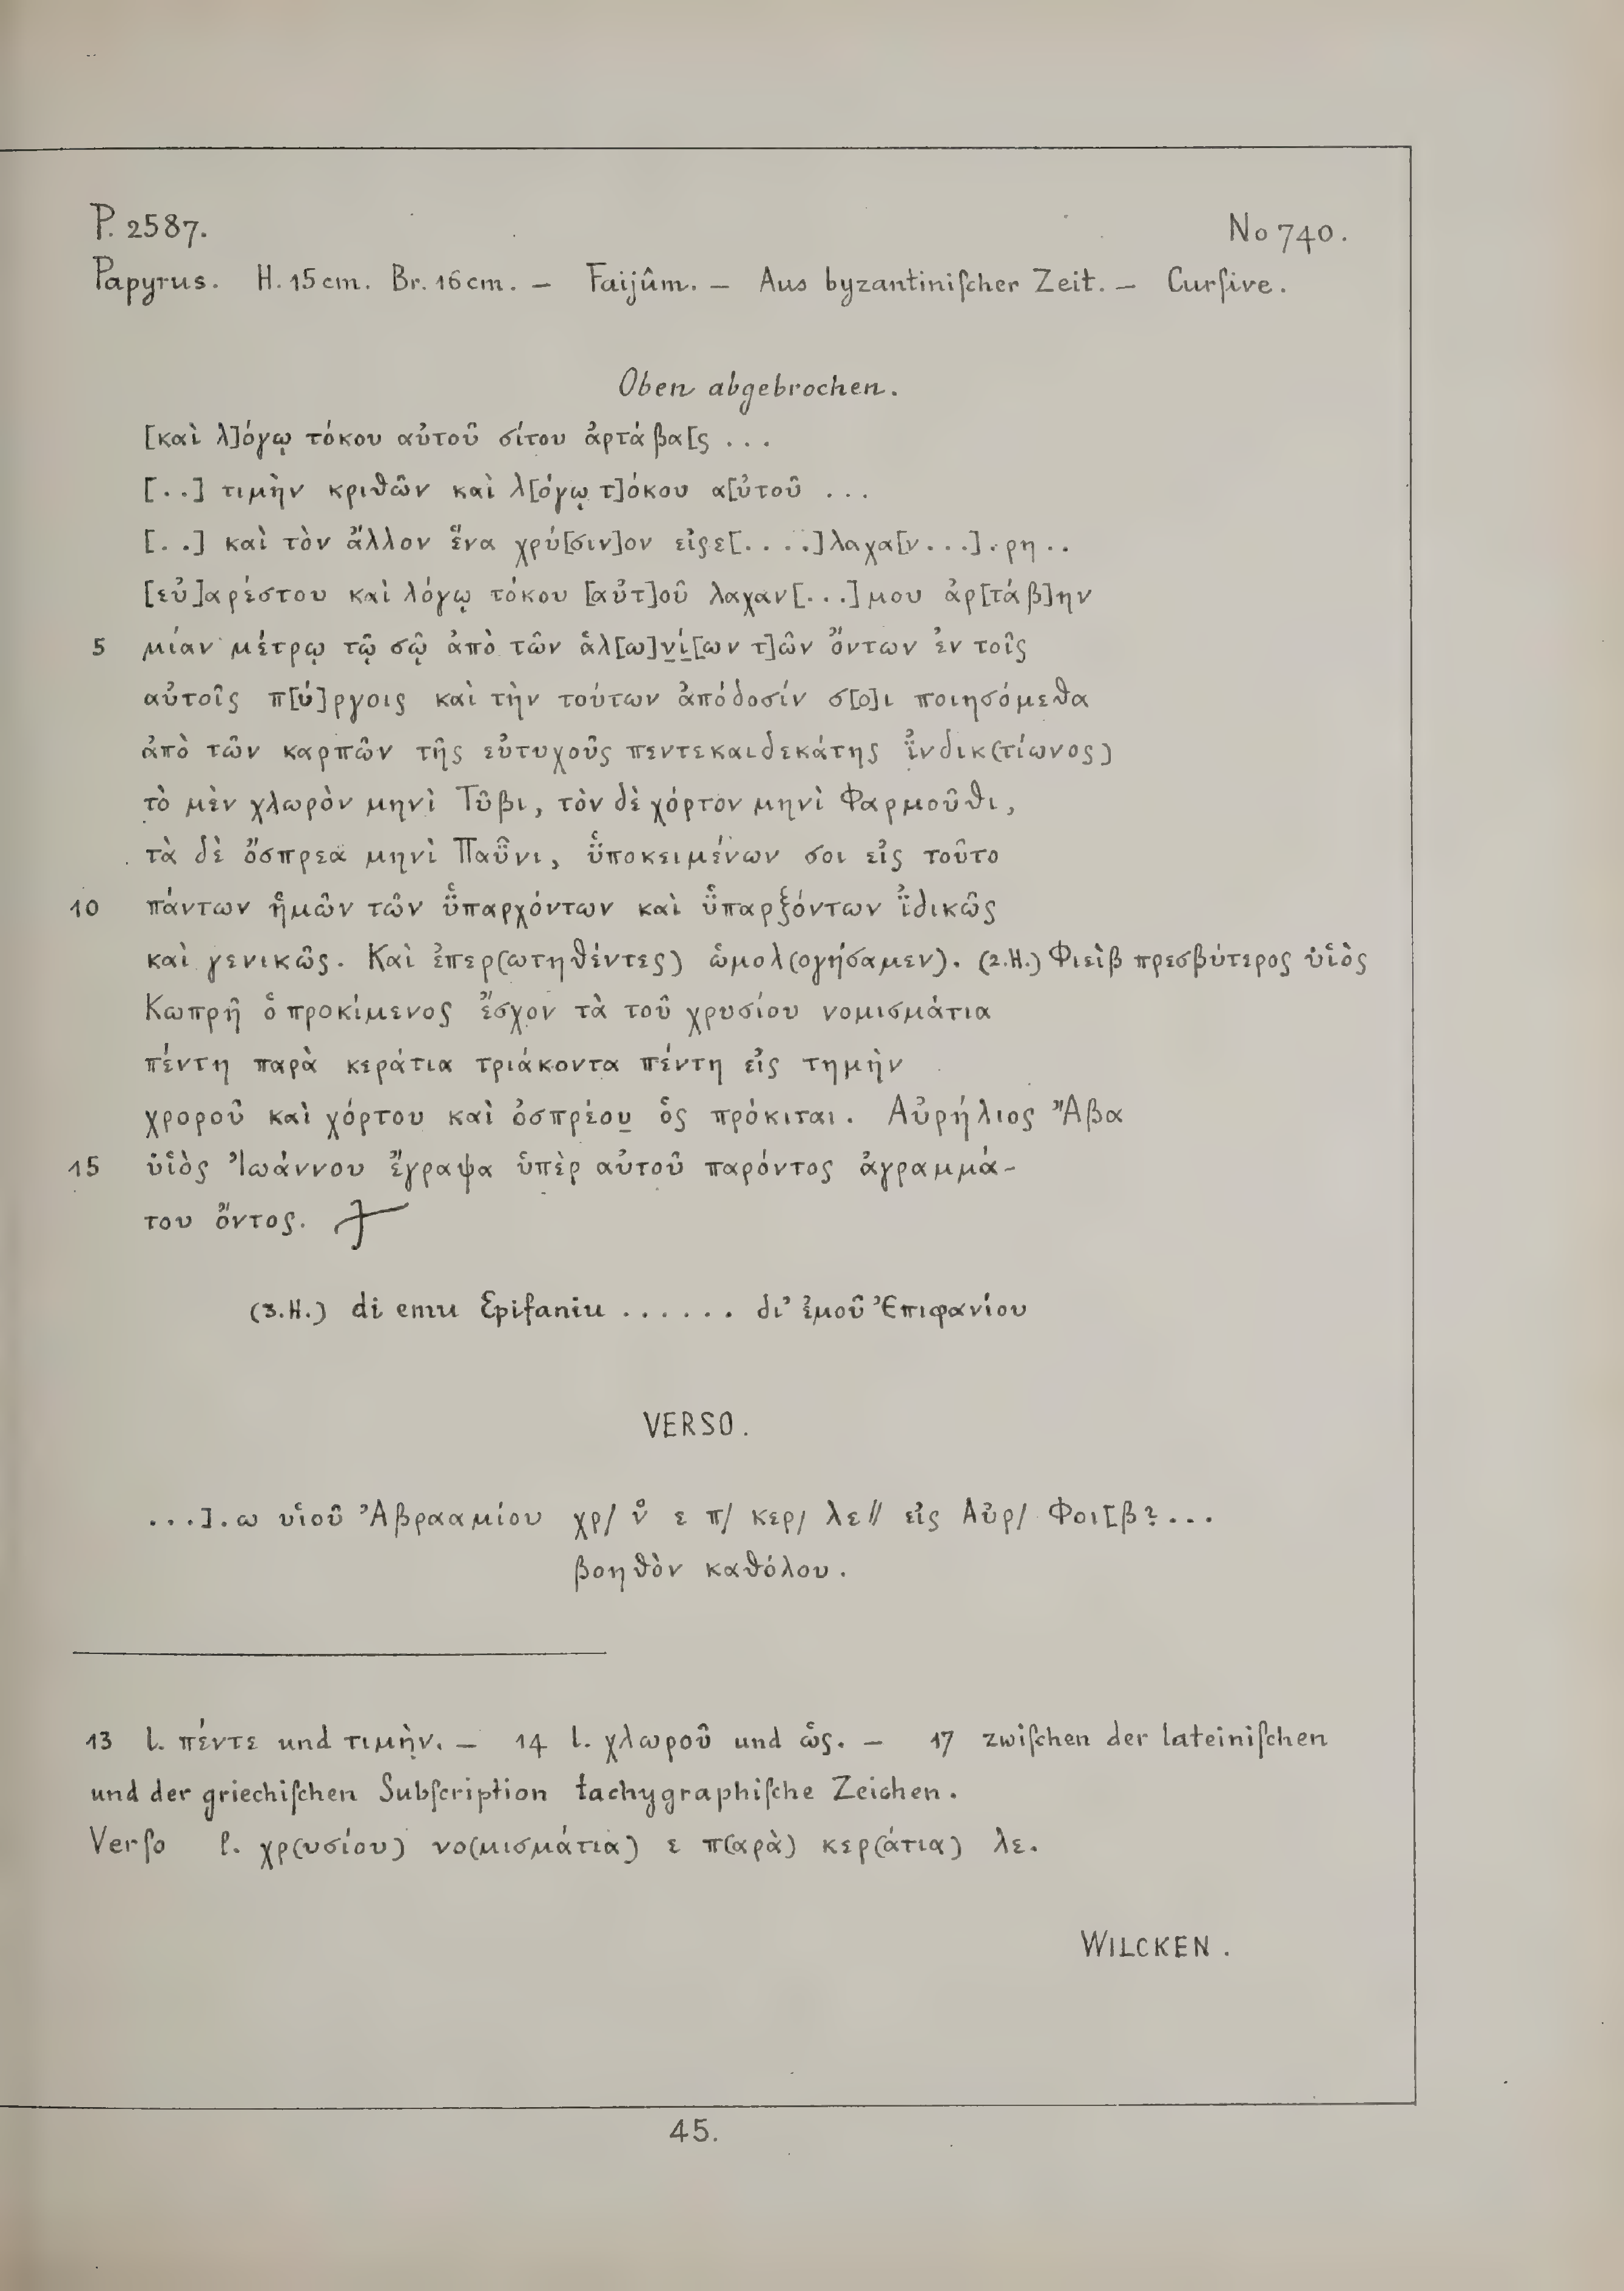 P. 2587. No 740.
Papyrus. H. 15 cm. Br. 16 cm. — Faijûm. — Aus byzantiniſcher Zeit. — Curſive.
Oben abgebrochen.
[καὶ λ]όγῳ τόκου αὐτοῦ σίτου ἀρτάβα[ς ...
[..] τιμὴν κριθῶν καὶ λ[όγῳ τ]όκου α[ὐτοῦ ...
[..] καὶ τὸν ἄλλον ἕνα χρύ[σιν]ον εἰςε[....]λαχα[ν...].ρη..
[εὐ]αρέστου καὶ λόγῳ τόκου [αὐτ]οῦ λαχαν[...]μου ἀρ[τάβ]ην
5 μίαν μέτρῳ τῷ σῷ ἀπὸ τῶν ἁλ[ω]ν̲ί̲[ων τ]ῶν ὄντων ἐν τοῖς
αὐτοῖς π[ύ]ργοις καὶ τὴν τούτων ἀπόδοσίν σ[ο]ι ποιησόμεθα
ἀπὸ τῶν καρπῶν τῆς εὐτυχοῦς πεντεκαιδεκάτης ἴ̈νδικ(τίωνος)
τὸ μὲν χλωρὸν μηνὶ Τῦβι, τὸν δὲ χόρτον μηνὶ Φαρμοῦθι,
τὰ δὲ ὄσπρεα μηνὶ Παῧνι, ὑ̈ποκειμένων σοι εἰς τοῦτο
10 πάντων ἡμῶν τῶν ὑ̈παρχόντων καὶ ὑ̈παρξόντων ἰ̈δικῶς
καὶ γενικῶς. Καὶ ἐπερ(ωτηθέντες) ὡμολ(ογήσαμεν). (2.H.) Φιεὶβ πρεσβύτερος ὑἱὸς
Κωπρῆ ὁ προκίμενος ἔσχον τὰ τοῦ χρυσίου νομισμάτια
πέντη παρὰ κεράτια τριάκοντα πέντη εἰς τημὴν
χροροῦ καὶ χόρτου καὶ ὀσπρέου̲ ὁς πρόκιται. Αὐρήλιος Ἄβα
15 ὑἱὸς Ἰωάννου ἔγραψα ὑπὲρ αὐτοῦ παρόντος ἀγραμμά-
του ὄντος.
(3.H.) di emu Epifaniu ...... δι' ἐμοῦ Ἐπιφανίου
VERSO.
...].ω υἱοῦ Ἀβρααμίου χρ/ ν̊ ε π/ κερ/ λε// εἰς Αὐρ/ Φοι[β?...
βοηθὸν καθόλου.
13 l. πέντε und τιμὴν. — 14 l. χλωροῦ und ὡς. — 17 zwiſchen der lateiniſchen
und der griechiſchen Subſcription tachygraphiſche Zeichen.
Verſo l. χρ(υσίου) νο(μισμάτια) ε π(αρὰ) κερ(άτια) λε.
WILCKEN.
45.